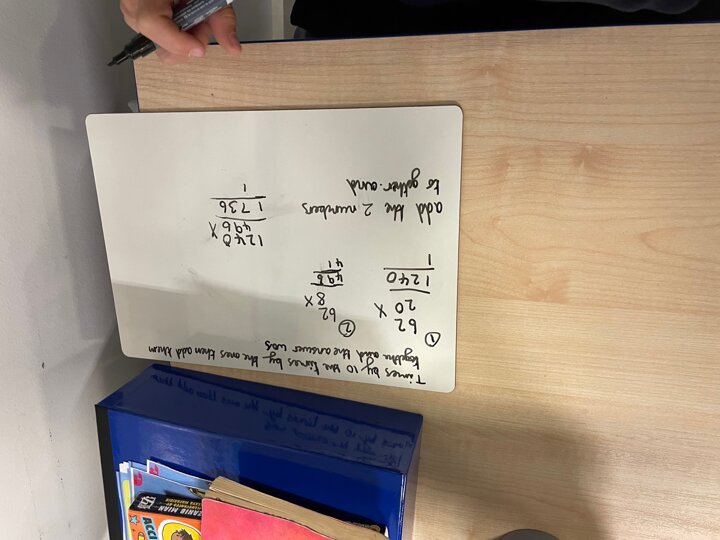 Times by 10 the times by the ones then add them
together and the answer was
①
62
20 x
1240
1
②
62
8x
496
41
add the 2 numbers
to gether. and
1240
496 x
1736
1
TANIB MIAN
ACCI